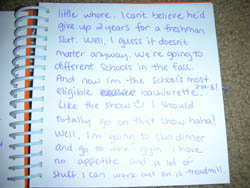 little whore. I cant believe he'd
give up 2 years for a freshman
slut. Well, I guess it doesn't
matter anyway. We're going to
different schools in the fall.
And now i'm the school's most
eligible bachlorette.
Like the show ☺ I should
totally go on that show haha!
Well, I'm going to skip dinner
and go to the gym. I have
no appetite and a lot of
stuff I can work out on a treadmill.